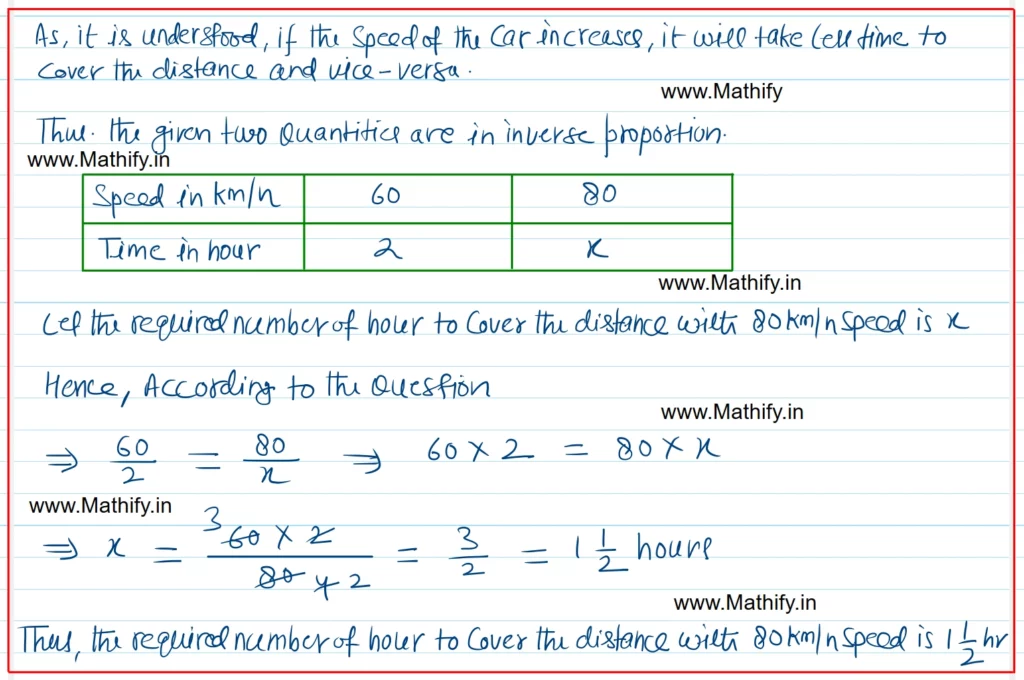 As, it is understood, if the Speed of the Car increases, it will take less time to
Cover the distance and vice-versa.
www.Mathify
Thus. the given two Quantities are in inverse proportion.
www.Mathify.in
Speed in km/h 60 80
Time in hour 2 x
www.Mathify.in
Let the required number of hour to Cover the distance with 80 km/h Speed is x
Hence, According to the Question
www.Mathify.in
⇒ 60/2 = 80/x ⇒ 60 × 2 = 80 × x
www.Mathify.in
⇒ x = 3 60 × 2 / 80 4 2 = 3/2 = 1 1/2 hours
www.Mathify.in
Thus, the required number of hour to Cover the distance with 80 km/h Speed is 1 1/2 hr